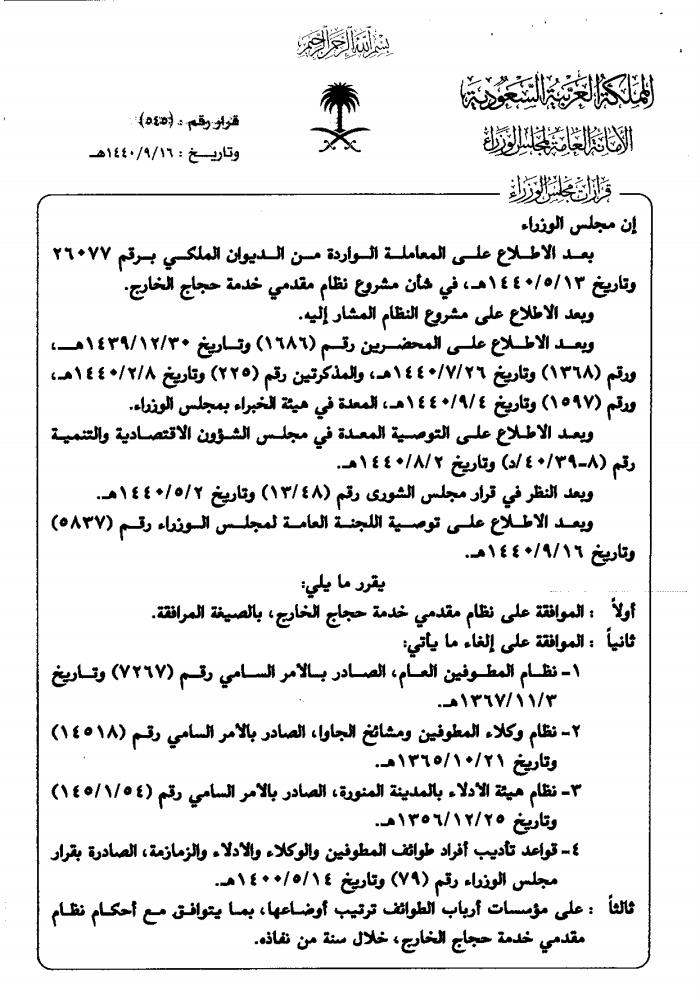 بسم الله الرحمن الرحيم
المملكة العربية السعودية
الأمانة العامة لمجلس الوزراء
قرار رقم : (٥٤٥)
وتاريخ : ١٤٤٠/٩/١٦هـ
قرارات مجلس الوزراء
إن مجلس الوزراء
بعد الاطلاع على المعاملة الواردة من الديوان الملكي برقم ٢٦٠٧٧
وتاريخ ١٤٤٠/٥/١٣هـ، في شأن مشروع نظام مقدمي خدمة حجاج الخارج.
وبعد الاطلاع على مشروع النظام المشار إليه.
وبعد الاطلاع على المحضرين رقم (١٦٨٦) وتاريخ ١٤٣٩/١٢/٣٠هـ،
ورقم (١٣٦٨) وتاريخ ١٤٤٠/٧/٢٦هـ، والمذكرتين رقم (٢٢٥) وتاريخ ١٤٤٠/٢/٨هـ،
ورقم (١٥٩٧) وتاريخ ١٤٤٠/٩/٤هـ، المعدة في هيئة الخبراء بمجلس الوزراء.
وبعد الاطلاع على التوصية المعدة في مجلس الشؤون الاقتصادية والتنمية
رقم (٨-٤٠/٣٩/د) وتاريخ ١٤٤٠/٨/٢هـ.
وبعد النظر في قرار مجلس الشورى رقم (١٣/٤٨) وتاريخ ١٤٤٠/٥/٢هـ.
وبعد الاطلاع على توصية اللجنة العامة لمجلس الوزراء رقم (٥٨٣٧)
وتاريخ ١٤٤٠/٩/١٦هـ.
يقرر ما يلي:
أولاً : الموافقة على نظام مقدمي خدمة حجاج الخارج، بالصيغة المرافقة.
ثانياً : الموافقة على إلغاء ما يأتي:
١- نظام المطوفين العام، الصادر بالأمر السامي رقم (٧٢٦٧) وتاريخ
١٣٦٧/١١/٣هـ.
٢- نظام وكلاء المطوفين ومشائخ الجاوا، الصادر بالأمر السامي رقم (١٤٥١٨)
وتاريخ ١٣٦٥/١٠/٢١هـ.
٣- نظام هيئة الأدلاء بالمدينة المنورة، الصادر بالأمر السامي رقم (١٤٥/١/٥٤)
وتاريخ ١٣٥٦/١٢/٢٥هـ.
٤- قواعد تأديب أفراد طوائف المطوفين والوكلاء والأدلاء والزمازمة، الصادرة بقرار
مجلس الوزراء رقم (٧٩) وتاريخ ١٤٠٠/٥/١٤هـ.
ثالثاً : على مؤسسات أرباب الطوائف ترتيب أوضاعها، بما يتوافق مع أحكام نظام
مقدمي خدمة حجاج الخارج، خلال سنة من نفاذه.